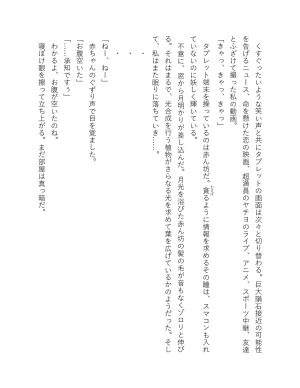 くすぐったいような笑い声と共にタブレットの画面は次々と切り替わる。巨大隕石接近の可能性
を告げるニュース、命を懸けた恋の映画、超満員のヤチヨのライブ、アニメ、スポーツ中継、友達
とふざけて撮った私の動画。
「きゃっ、きゃっ、きゃっ」
タブレット端末を操っているのは赤ん坊だ。貪るように情報を求めるその瞳は、スマコンも入れ
むさぼ
ていないのに妖しく輝いている。
不意に、窓から月明かりが差し込んだ。月光を浴びた赤ん坊の髪の毛が音もなくゾロリと伸び
る。それはまるで、光合成を行う植物がさらなる光を求めて葉を広げているかのようだった。そし
て、私はまた眠りに落ちていき……。
・
・
・
「ねー、ねー」
赤ちゃんのぐずり声で目を覚ました。
「お腹空いた」
「……承知ですぅ」
わかるよ、お腹が空いたのね。
寝ぼけ眼を擦って立ち上がる。まだ部屋は真っ暗だ。